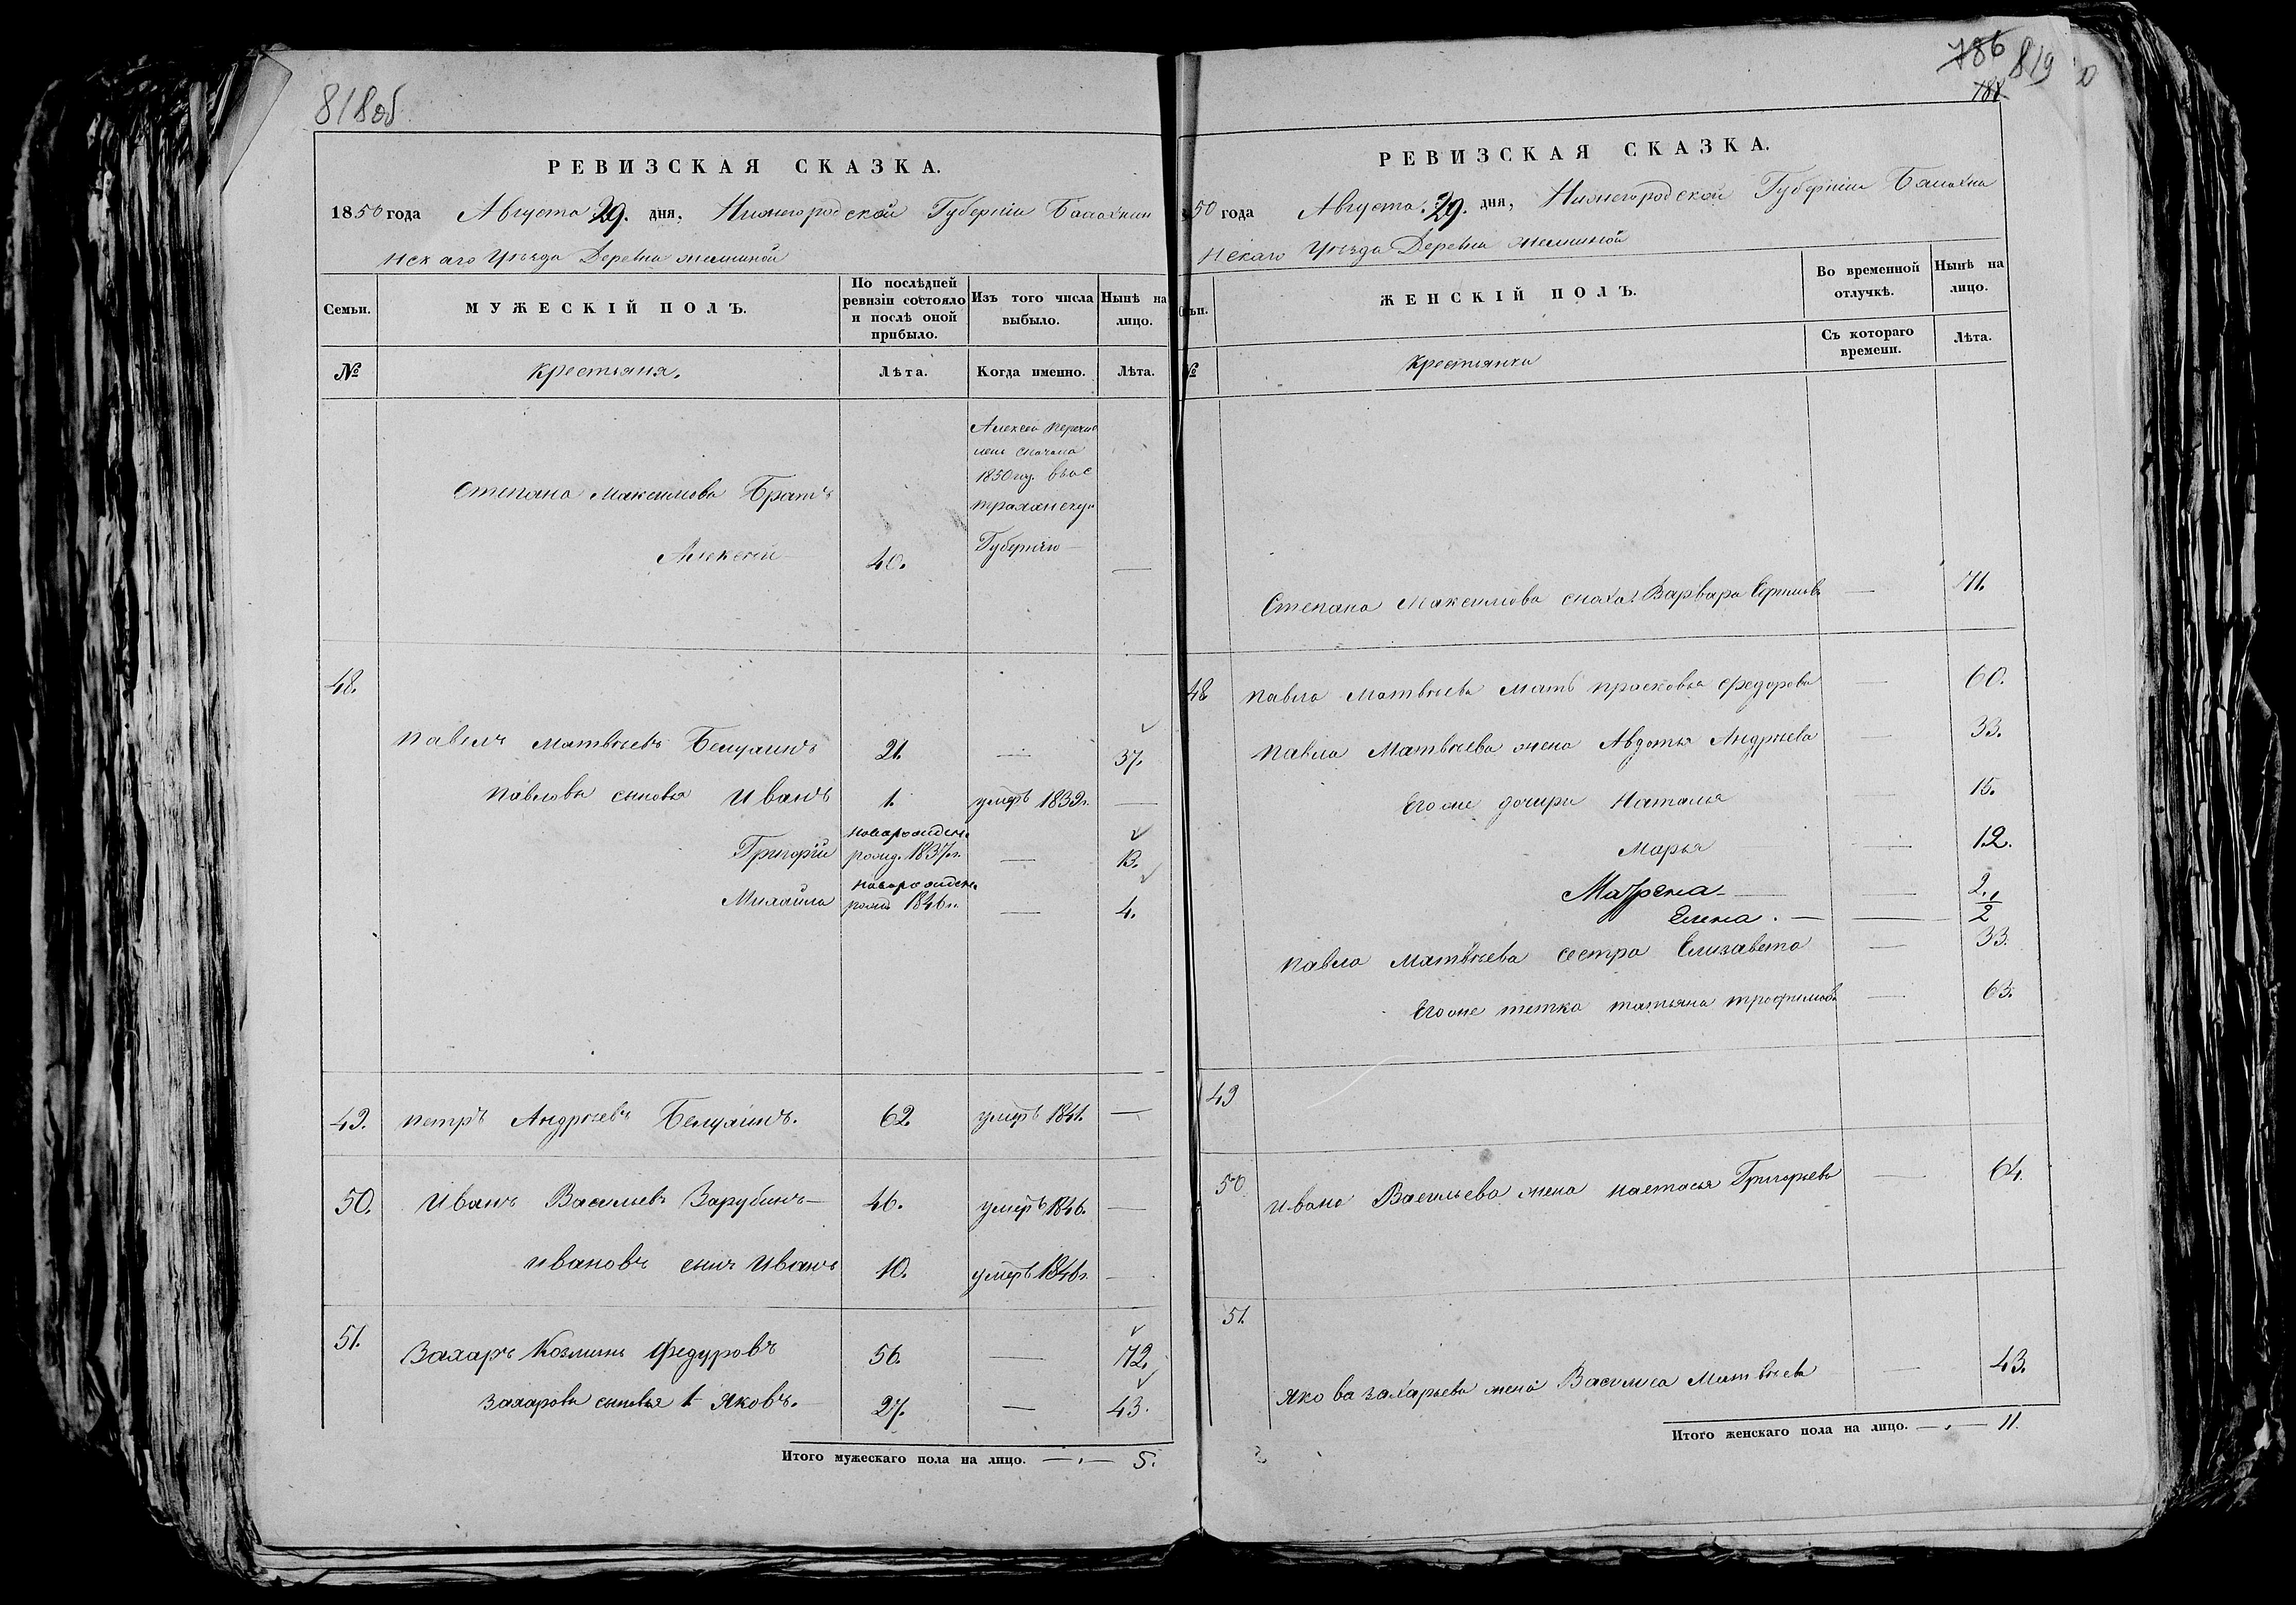 818об
РЕВИЗСКАЯ СКАЗКА.
1850 года Августа 29. дня, Нижегородской Губерніи Балахнин
нскаго Уѣзда Деревни
Семьи.
МУЖЕСКІЙ ПОЛЪ.
По послѣдней ревизіи состояло и послѣ оной прибыло.
Изъ того числа выбыло.
Нынѣ на лицо.
№
крестьяня.
Лѣта.
Когда именно.
Лѣта.
Алексей перечис
лен сначала
1850 год. вьас
траханскую
Губернию —
Степана Максимова Братъ
Алексей — 40. —
48.
Павелъ Матвѣевъ 21. — 37.
Павловы сыновья Иванъ 1. умеръ 1839г. —
Григорій новорожден. рожд. 1837г. — 13.
Михайла новорожден. рожд. 1846г. — 4.
49. Петръ Андрѣевъ 62. умеръ 1841. —
50. Иванъ Васильевъ Зарубинъ — 46. умеръ 1846. —
Ивановъ сынъ Иванъ 10. умеръ 1846г. —
51. Захаръ Козминъ Федуровъ 56. — 72.
Захаровы сыновья 1 Яковъ. 27. — 43.
Итого мужескаго пола на лицо. — . — 5.
786 819
788
РЕВИЗСКАЯ СКАЗКА.
50 года Августа. 29. дня, Нижегородской Губерніи Балахни
нскаго Уѣзда Деревни
ьи.
ЖЕНСКІЙ ПОЛЪ.
Во временной отлучкѣ.
Нынѣ на лицо.
Съ котораго времени.
Лѣта.
№
крестьянки
Степана Максимова сноха Варвара — 71.
48 Павла Матвѣева мать Прасковья Федорова — 60.
Павла Матвѣева жена Авдотья Андрѣева — 33.
Его же дочири Наталья — 15.
Марья — 12.
Матрена — — 2.
Елена . — — 1/2
Павла Матвѣева сестра Елизавета — 33.
Его же тетка татьяна трофимова — 63.
49
50 Ивана Васильева жена Настасья Григорьева — 64.
51.
Якова захарьева жена Василиса Матвѣева — 43.
Итого женскаго пола на лицо. — . — 11.